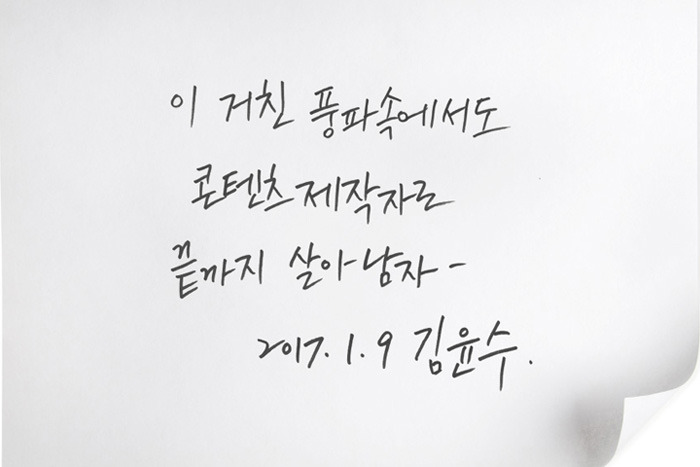 이 거친 풍파속에서도
콘텐츠제작자로
끝까지 살아남자-
2017.1.9 김윤수.